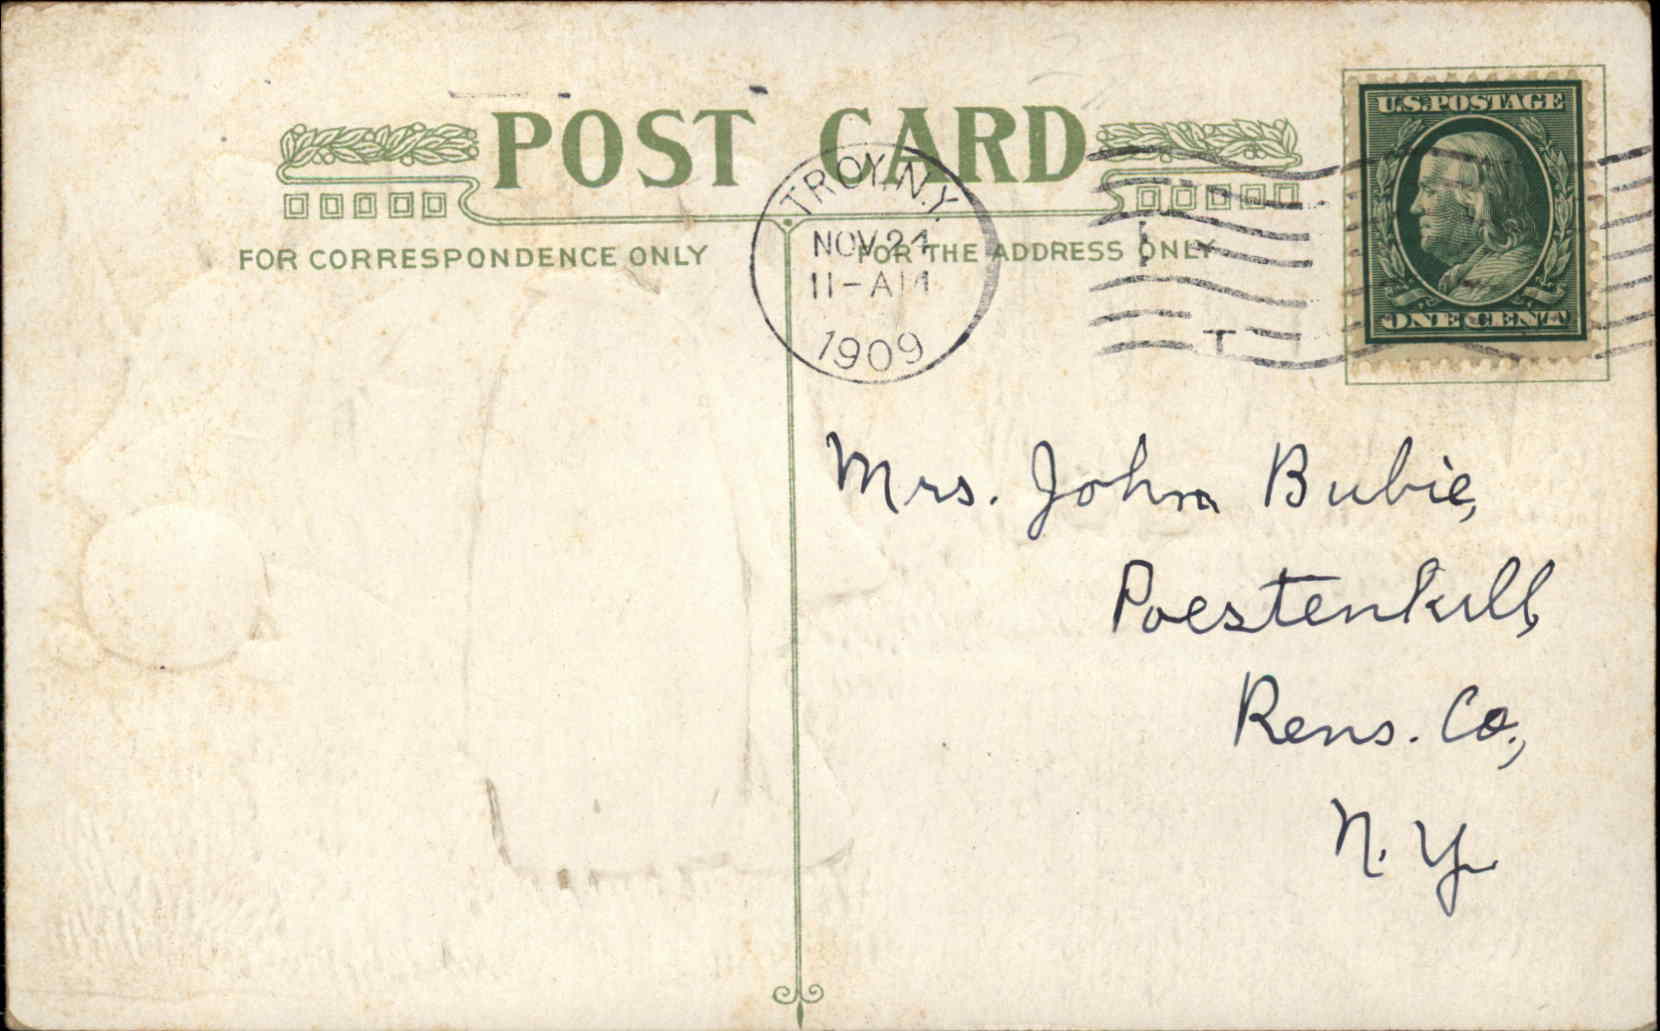 POST CARD
FOR CORRESPONDENCE ONLY
FOR THE ADDRESS ONLY
TROY, N.Y.
NOV 24
11-AM
1909
T
U.S. POSTAGE
ONE CENT
Mrs. John Bubie,
Poestenkill,
Rens. Co.,
N. Y.